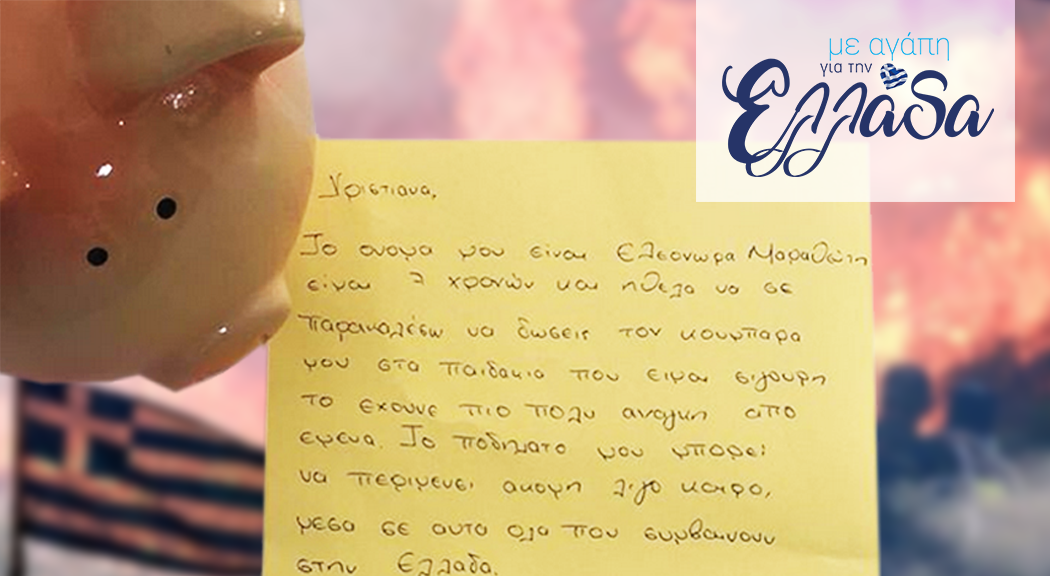 με αγάπη
για την
Ελλάδα
Χριστιανα,
Το ονομα μου ειναι Ελεονωρα Μαραθώτη
ειμαι 7 χρονών και ηθελα να σε
παρακαλέσω να δωσεις τον κουμπαρα
μου στα παιδακια που ειμαι σιγουρη
το εχουνε πιο πολυ αναγκη απο
εμενα. Το ποδηλατο μου μπορει
να περιμενει ακομη λιγο καιρο,
μεσα σε αυτα ολα που συμβαινουν
στην Ελλαδα.